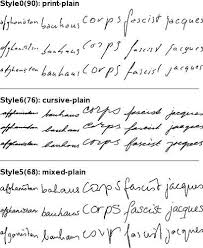 Style0(90): print-plain
afghanistan bauhaus corps fascist jacques
afghanistan bauhaus corps fascist jacques
afghanistan bauhaus corps fascist jacques
Style6(76): cursive-plain
afghanistan bauhaus corps fascist jacques
afghanistan bauhaus corps fascist jacques
afghanistan bauhaus corps fascist jacques
Style5(68): mixed-plain
afghanistan bahaus corps fascist jacques
afghanistan bauhaus corps fascist jacques
afganistan bauhaus corps fascist jacques